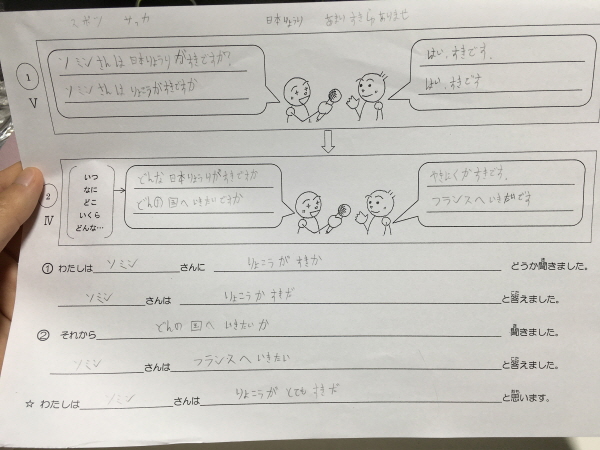 スポツ サッカ 日本りょうり あまり すきじゃありませ
① V
ソミンさんは日本りょうりがすきですか？
ソミンさんは りょこうがすきですか
はい、すきです。
はい、すきです
② IV
いつ
なに
どこ
いくら
どんな…
どんな日本りょうりがすきですか
どんの国へいきたいですか
やきにくがすきです。
フランスへいきたいです
① わたしは ソミン さんに りょこうがすきか どうか聞きました。
ソミン さんは りょこうがすきだ と答えました。
② それから どんの国へ いきたいか 聞きました。
ソミン さんは フランスへいきたい と答えました。
☆ わたしは ソミン さんは りょこうが とても すきだ と思います。